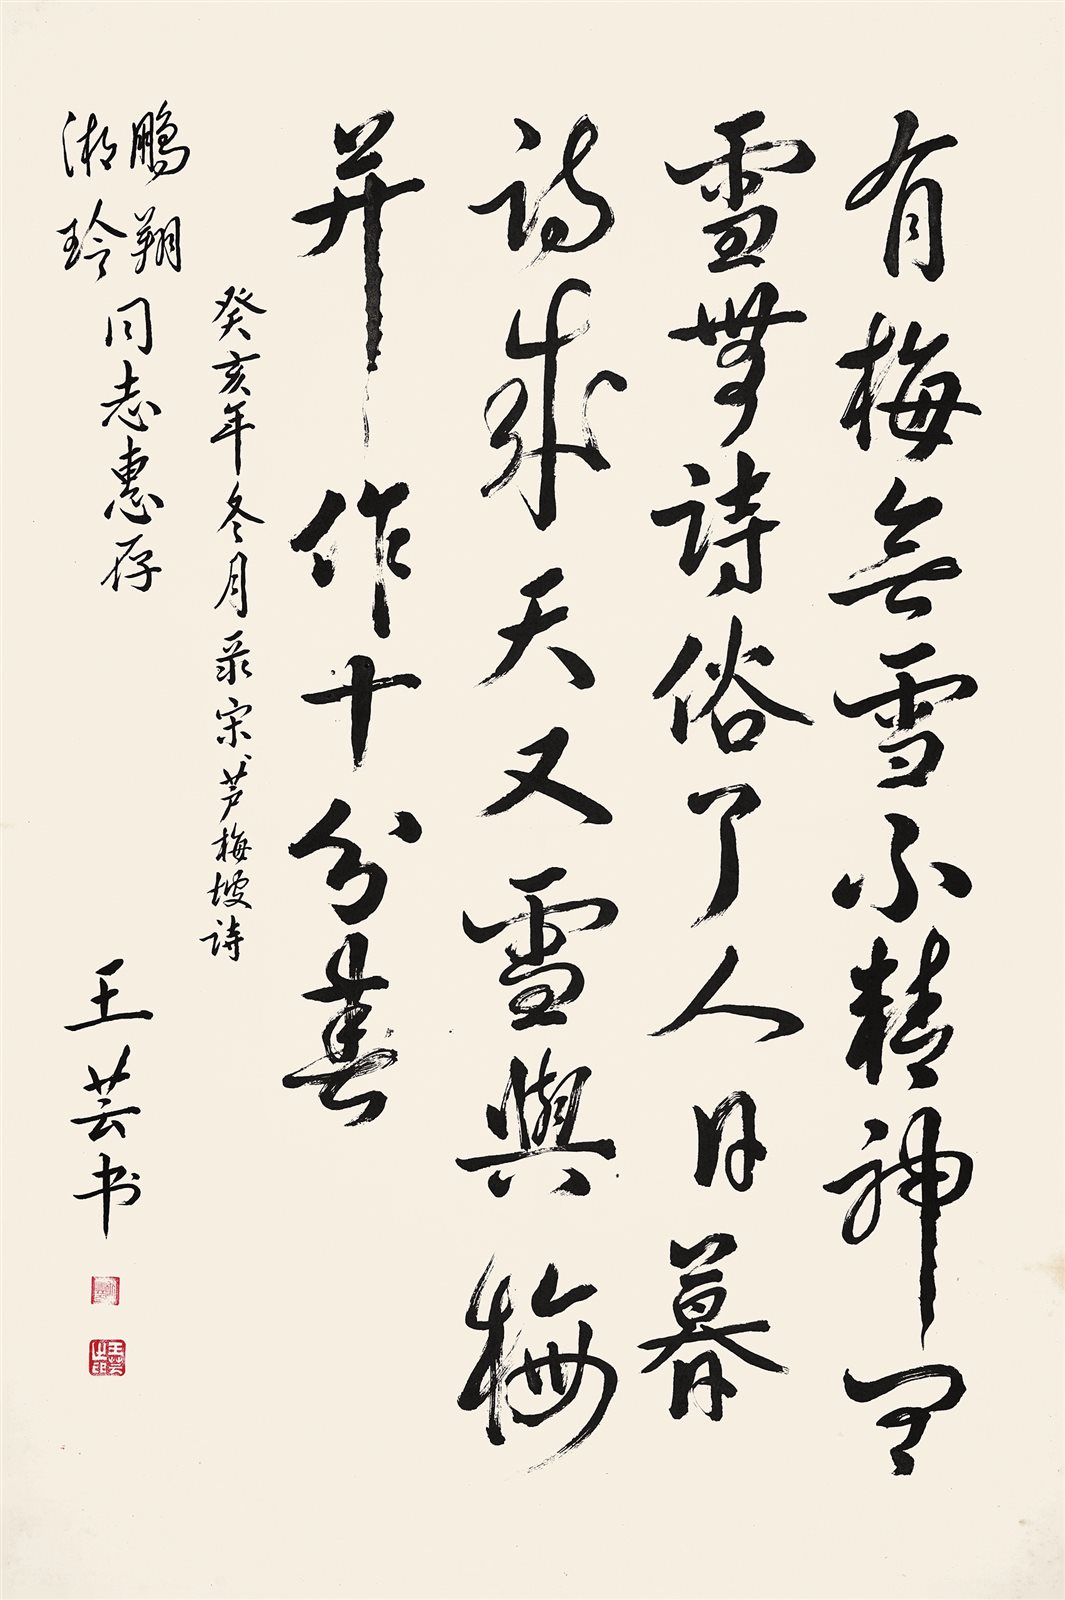 有梅无雪不精神有
雪無詩俗了人日暮
诗成天又雪與梅
并作十分春
癸亥年冬月录宋芦梅坡诗
鹏翔
湘玲
同志惠存
王芸书
王芸之印